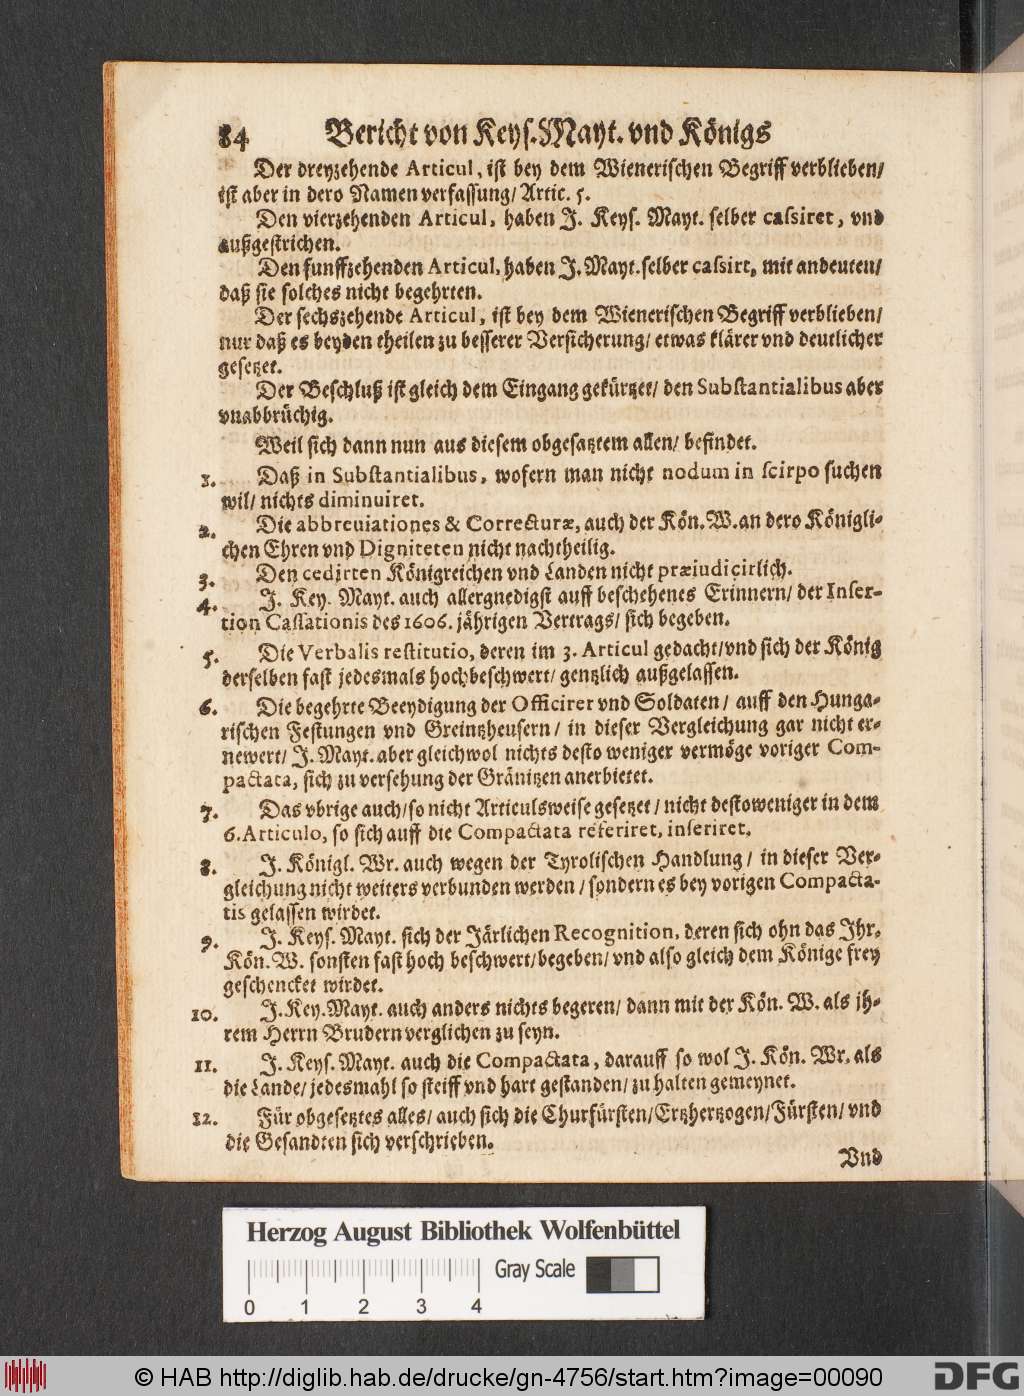 84 Bericht von Keys. Mayt. vnd Königs
Der dreyzehende Articul, ist bey dem Wienerischen Begriff verblieben/
ist aber in dero Namen verfassung/ Artic. 5.
Den vierzehenden Articul, haben J. Keys. Mayt. selber cassiret, vnd
außgestrichen.
Den funffzehenden Articul, haben J. Mayt. selber cassirt, mit andeuten/
daß sie solches nicht begehrten.
Der sechszehende Articul, ist bey dem Wienerischen Begriff verblieben/
nur daß es beyden theilen zu besserer Versicherung/ etwas klärer vnd deutlicher
gesetzet.
Der Beschluß ist gleich dem Eingang gekürtzet/ den Substantialibus aber
vnabbrüchig.
Weil sich dann nun aus diesem obgesatztem allen/ befindet.
1. Daß in Substantialibus, wofern man nicht nodum in scirpo suchen
wil/ nichts diminuiret.
2. Die abbreuiationes & Correcturæ, auch der Kön. W. an dero Königli-
chen Ehren vnd Digniteten nicht nachtheilig.
3. Den cedirten Königreichen vnd Landen nicht præiudicirlich.
4. J. Key. Mayt. auch allergnedigst auff beschehenes Erinnern/ der Inser-
tion Cassationis des 1606. jährigen Vertrags/ sich begeben.
5. Die Verbalis restitutio, deren im 3. Articul gedacht/ vnd sich der König
derselben fast jedesmals hochbeschwert/ gentzlich außgelassen.
6. Die begehrte Beeydigung der Officirer vnd Soldaten/ auff den Hunga-
rischen Festungen vnd Greintzheusern/ in dieser Vergleichung gar nicht er-
newert/ J. Mayt. aber gleichwol nichts desto weniger vermöge voriger Com-
pactata, sich zu versehung der Gränitzen anerbietet.
7. Das vbrige auch/ so nicht Articulsweise gesetzet/ nicht destoweniger in dem
6. Articulo, so sich auff die Compactata referiret, inseriret.
8. J. Königl. Wr. auch wegen der Tyrolischen Handlung/ in dieser Ver-
gleichung nicht weiters verbunden werden/ sondern es bey vorigen Compacta-
tis gelassen wirdet.
9. J. Keys. Mayt. sich der Järlichen Recognition, deren sich ohn das Jhr.
Kön. W. sonsten fast hoch beschwert/ begeben/ vnd also gleich dem Könige frey
geschencket wirdet.
10. J. Key. Mayt. auch anders nichts begeren/ dann mit der Kön. W. als jh-
rem Herrn Brudern verglichen zu seyn.
11. J. Keys. Mayt. auch die Compactata, darauff so wol J. Kön. Wr. als
die Lande/ jedesmahl so steiff vnd hart gestanden/ zu halten gemeynet.
12. Für obgesetztes alles/ auch sich die Churfürsten/ Ertzhertzogen/ Fürsten/ vnd
die Gesandten sich verschrieben.
Vnd
Herzog August Bibliothek Wolfenbüttel
Gray Scale
0 1 2 3 4
© HAB http://diglib.hab.de/drucke/gn-4756/start.htm?image=00090
DFG